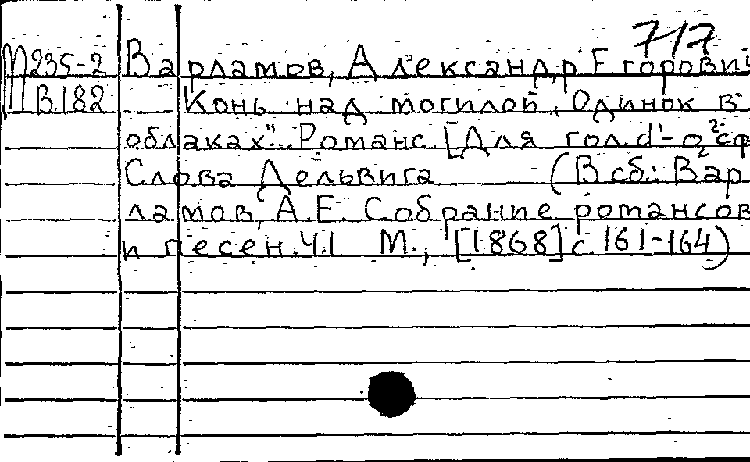 717
М235-2 Варламов, Александр Егорович
В182 Конь над могилой, Одинок в
облаках". Романс. [Для гол. d¹-g² с ф
Слова Дельвига (В сб.: Вар
ламов, А.Е. Собрание романсов
и песен. Ч.I М., [1868] с. 161-164)